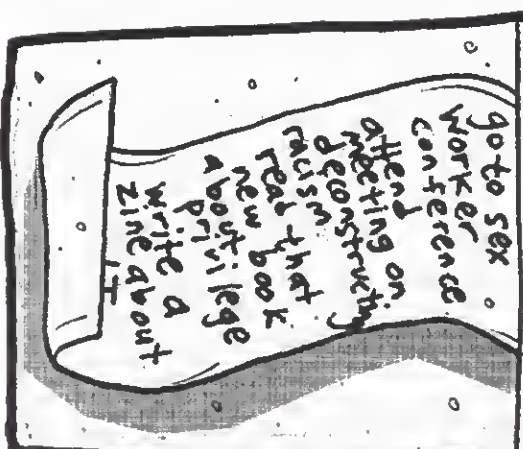 go to sex
worker
conference
attend
meeting on
deconstructing
racism
read that
new book
about
privilege
write a
zine about
it